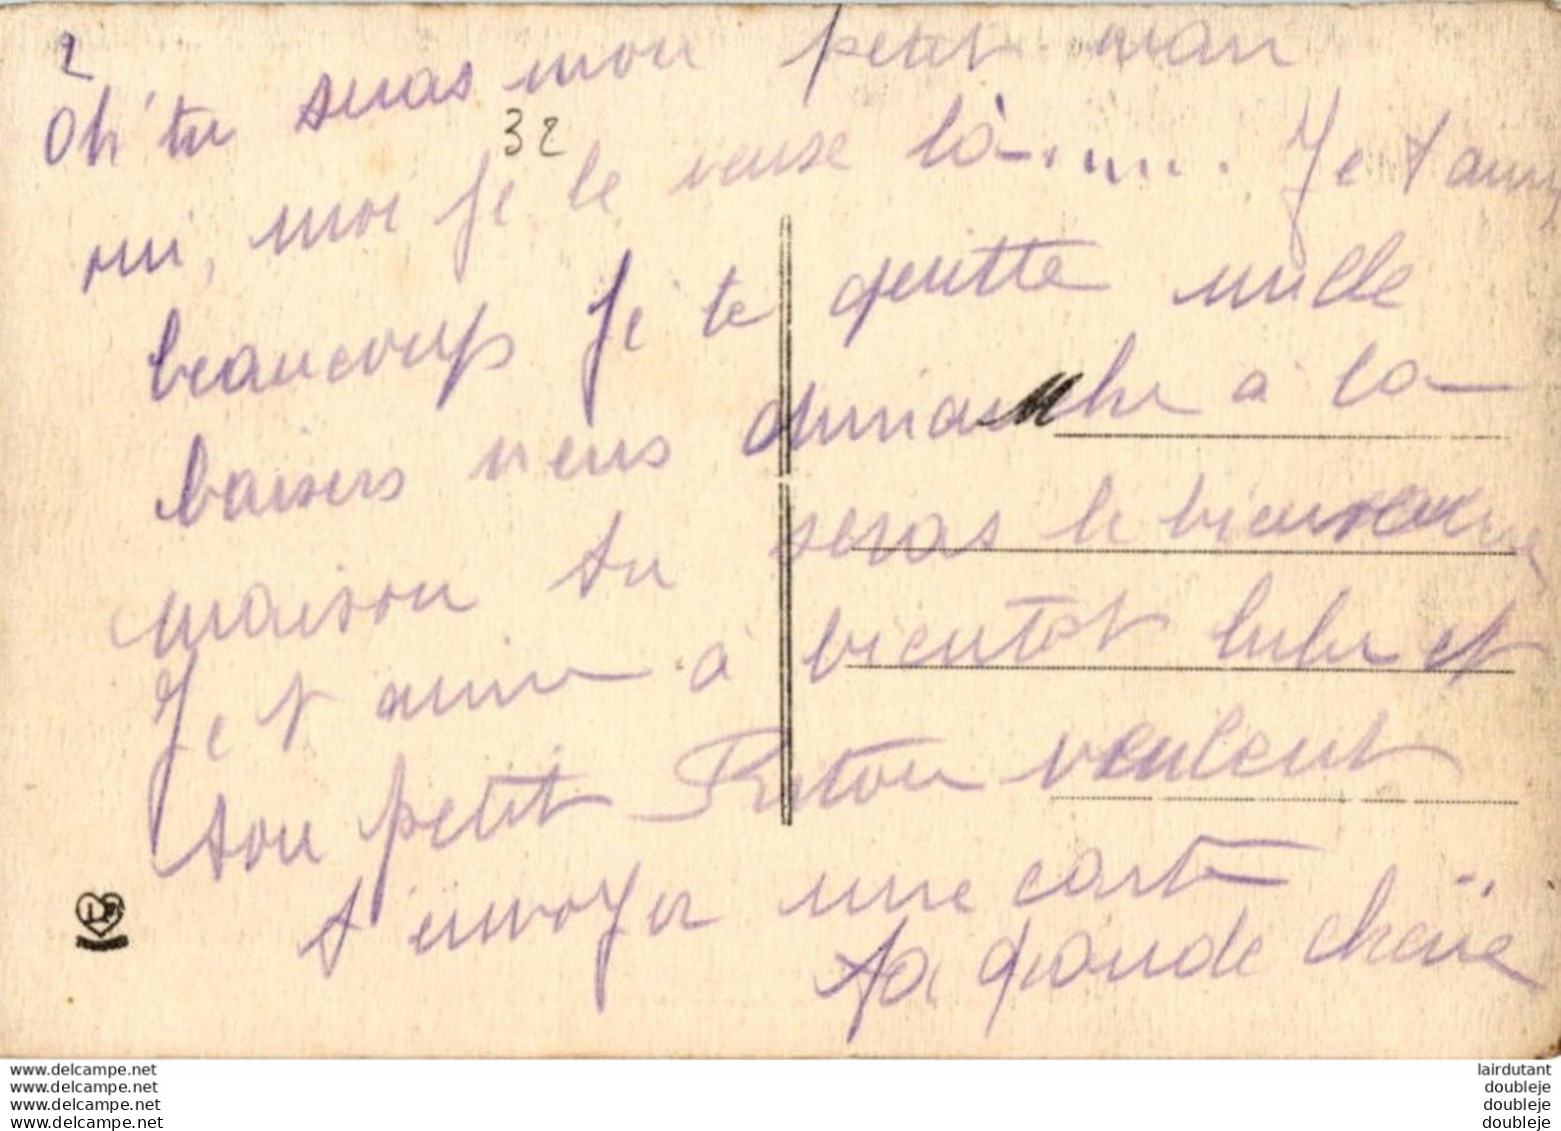 2
Oh' tu seras mon petit mari
32
oui, moi je le veuse là...... Je t aime
beaucoup Je te quitte mille
baisers viens dimanche à la
maison tu seras le bienvenue
Je t aime à bientot lulu et
ton petit Riton veulent
t'envoyer une carte
ta grande chérie
www.delcampe.net
www.delcampe.net
www.delcampe.net
www.delcampe.net
lairdutant
doubleje
doubleje
doubleje